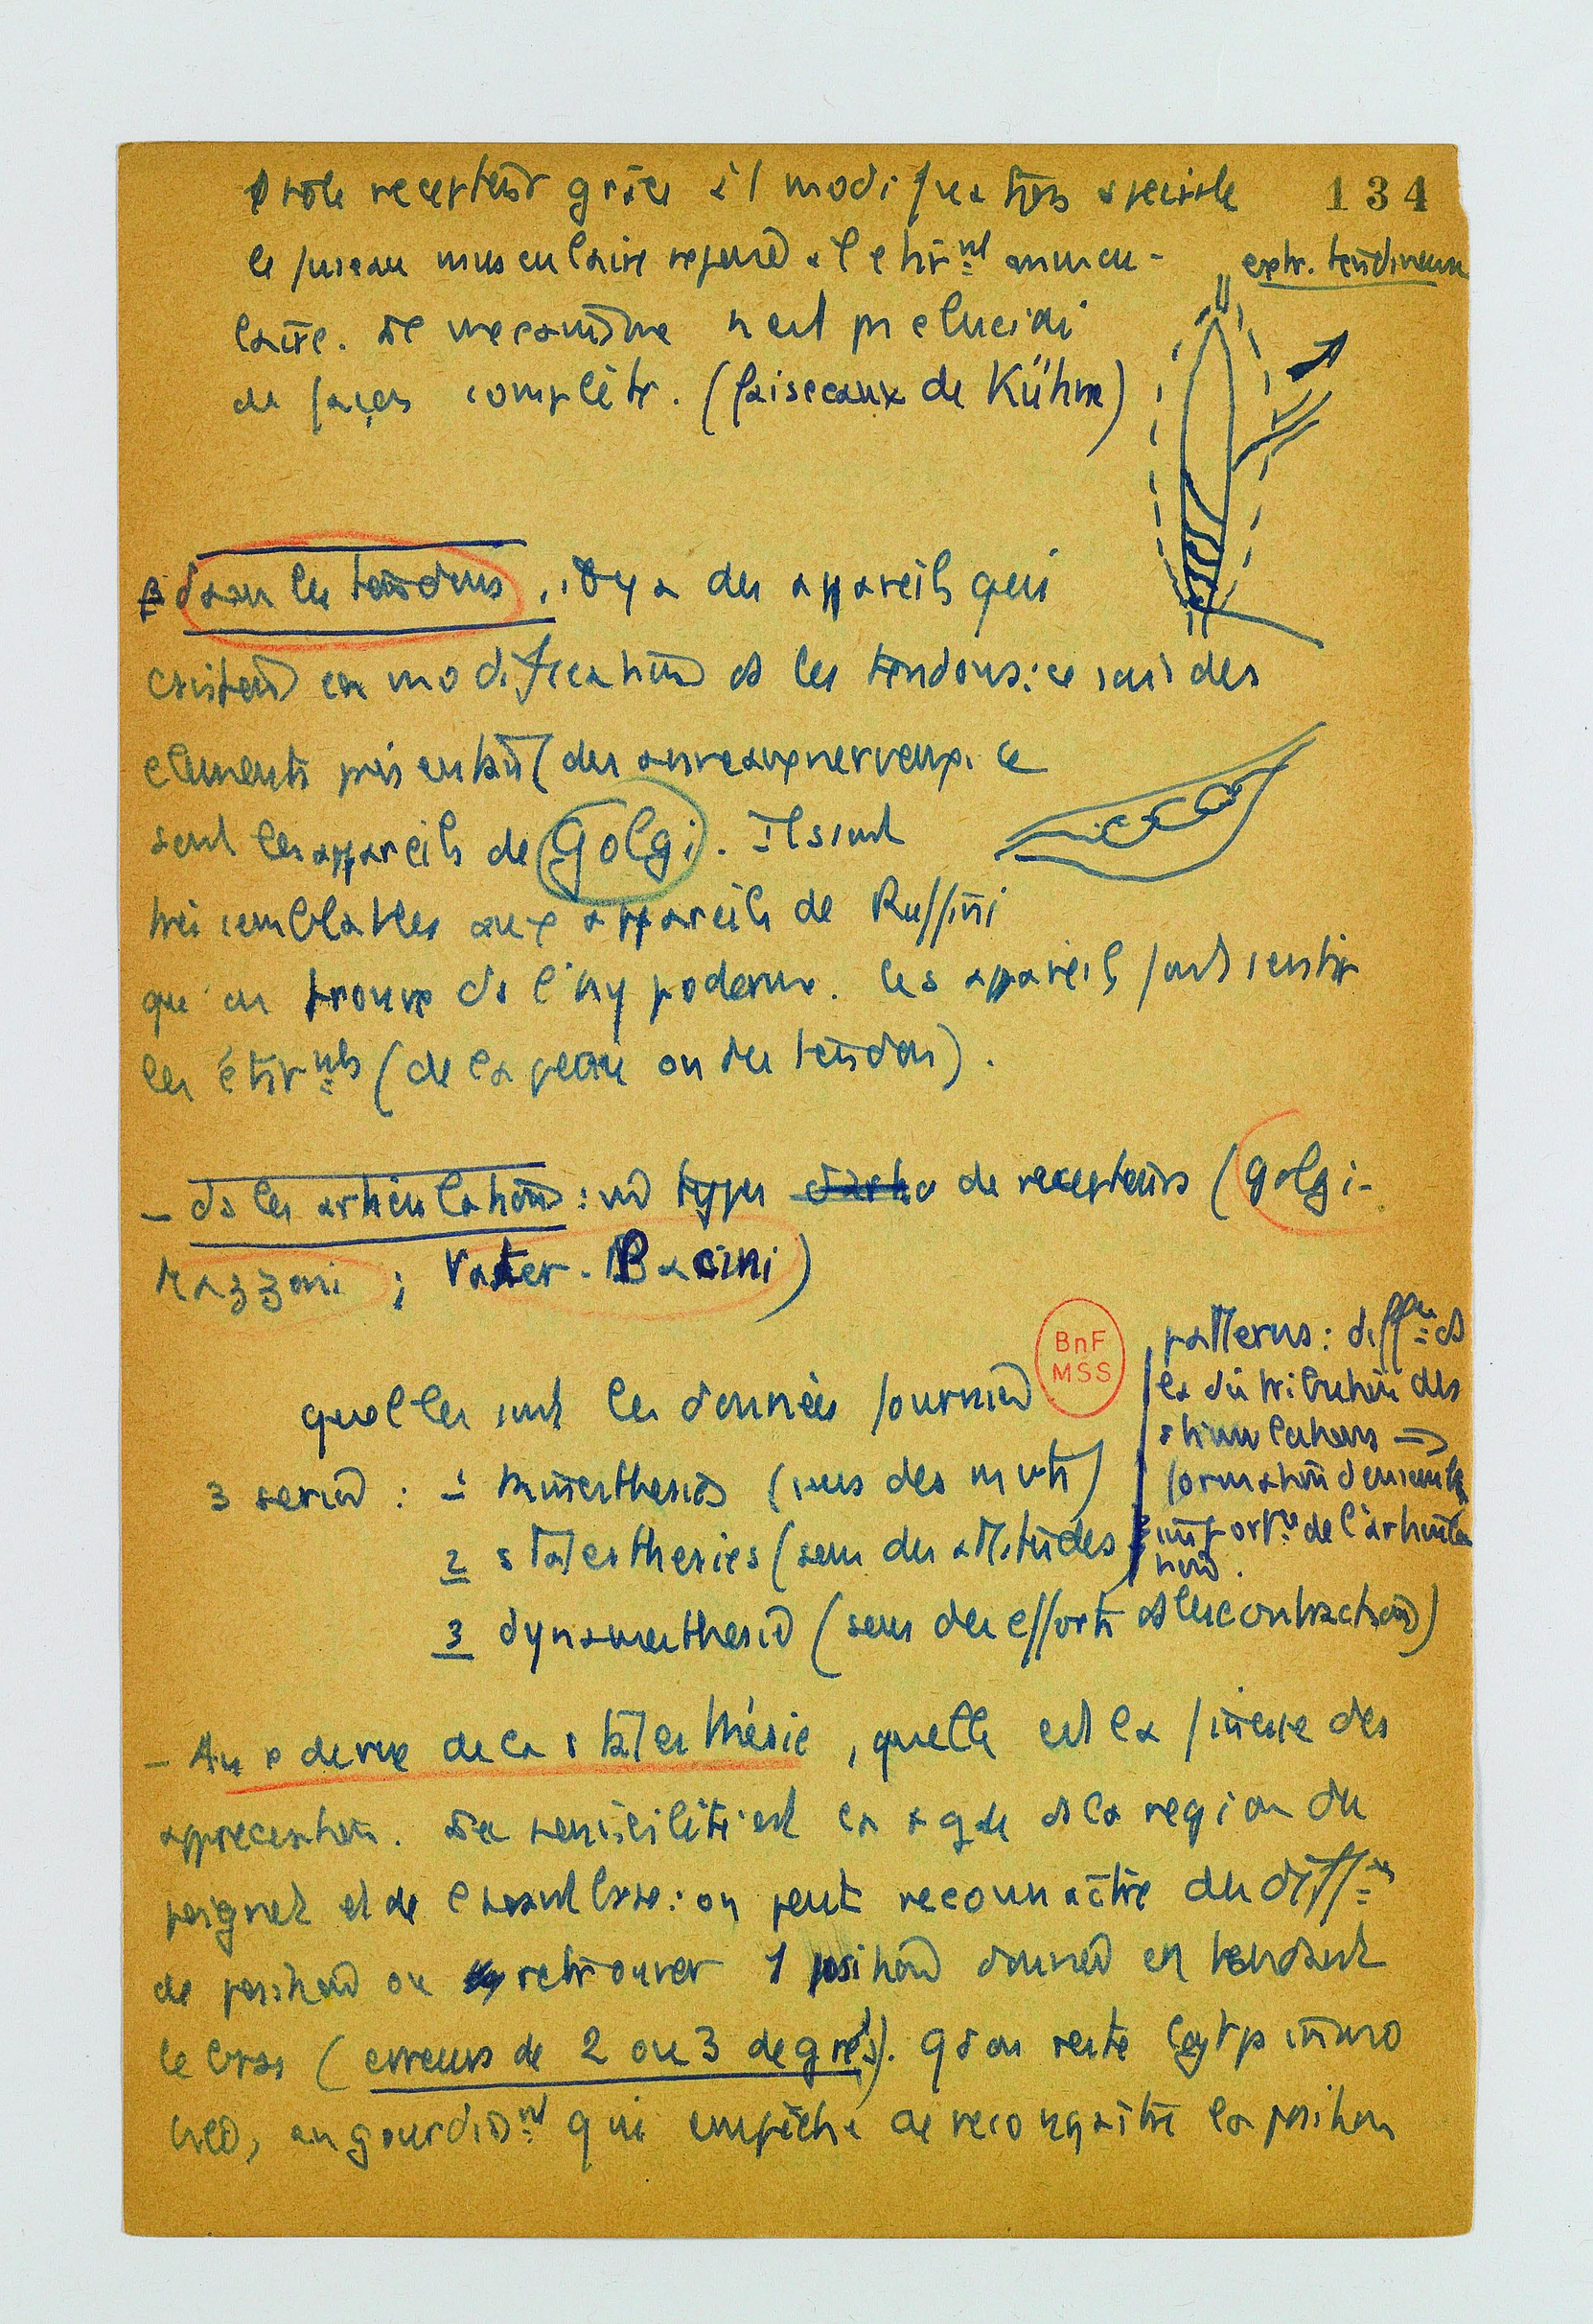 rôle recepteur grâce à 1 modification speciale
134
le fuseau musculaire repond à l'etirnt muscu-
extr. tendineuse
laire. Le mecanisme n'est pas elucidé
de façon complète. (faisceaux de Kühne)
β dans les tendons, il y a des appareils qui
existent en modification ds les tendons: ce sont des
elements présentant des anneaux nerveux. ce
sont les appareils de Golgi. Ils sont
très semblables aux appareils de Ruffini
qu'on trouve ds l'hypoderme. Ces appareils font sentir
les étirnts (de la peau ou du tendon).
- ds les articulations: types de recepteurs (Golgi-
Mazzoni ; Vater-Pacini)
quelles sont les données fournies
BnF
MSS
3 series : 1 kinesthesies (sens des mvts)
2 statesthesies (sens des attitudes)
3 dynamesthesies (sens des efforts et les contractions)
patterns: diffces ds
la distribution des
stimulations →
formation d'ensemble
importce de l'articula
tion.
- Au p de vue de la statesthésie, quelle est la finesse des
appreciation. La sensibilité est la + gde ds la region du
poignet et de l'avant bras: on peut reconnaître des diffces
de position ou retrouver 1 position donnée en tendant
le bras (erreurs de 2 ou 3 degrés). Qd on reste lgtps immo
bile, engourdisnt qui empêche de reconnaître la position